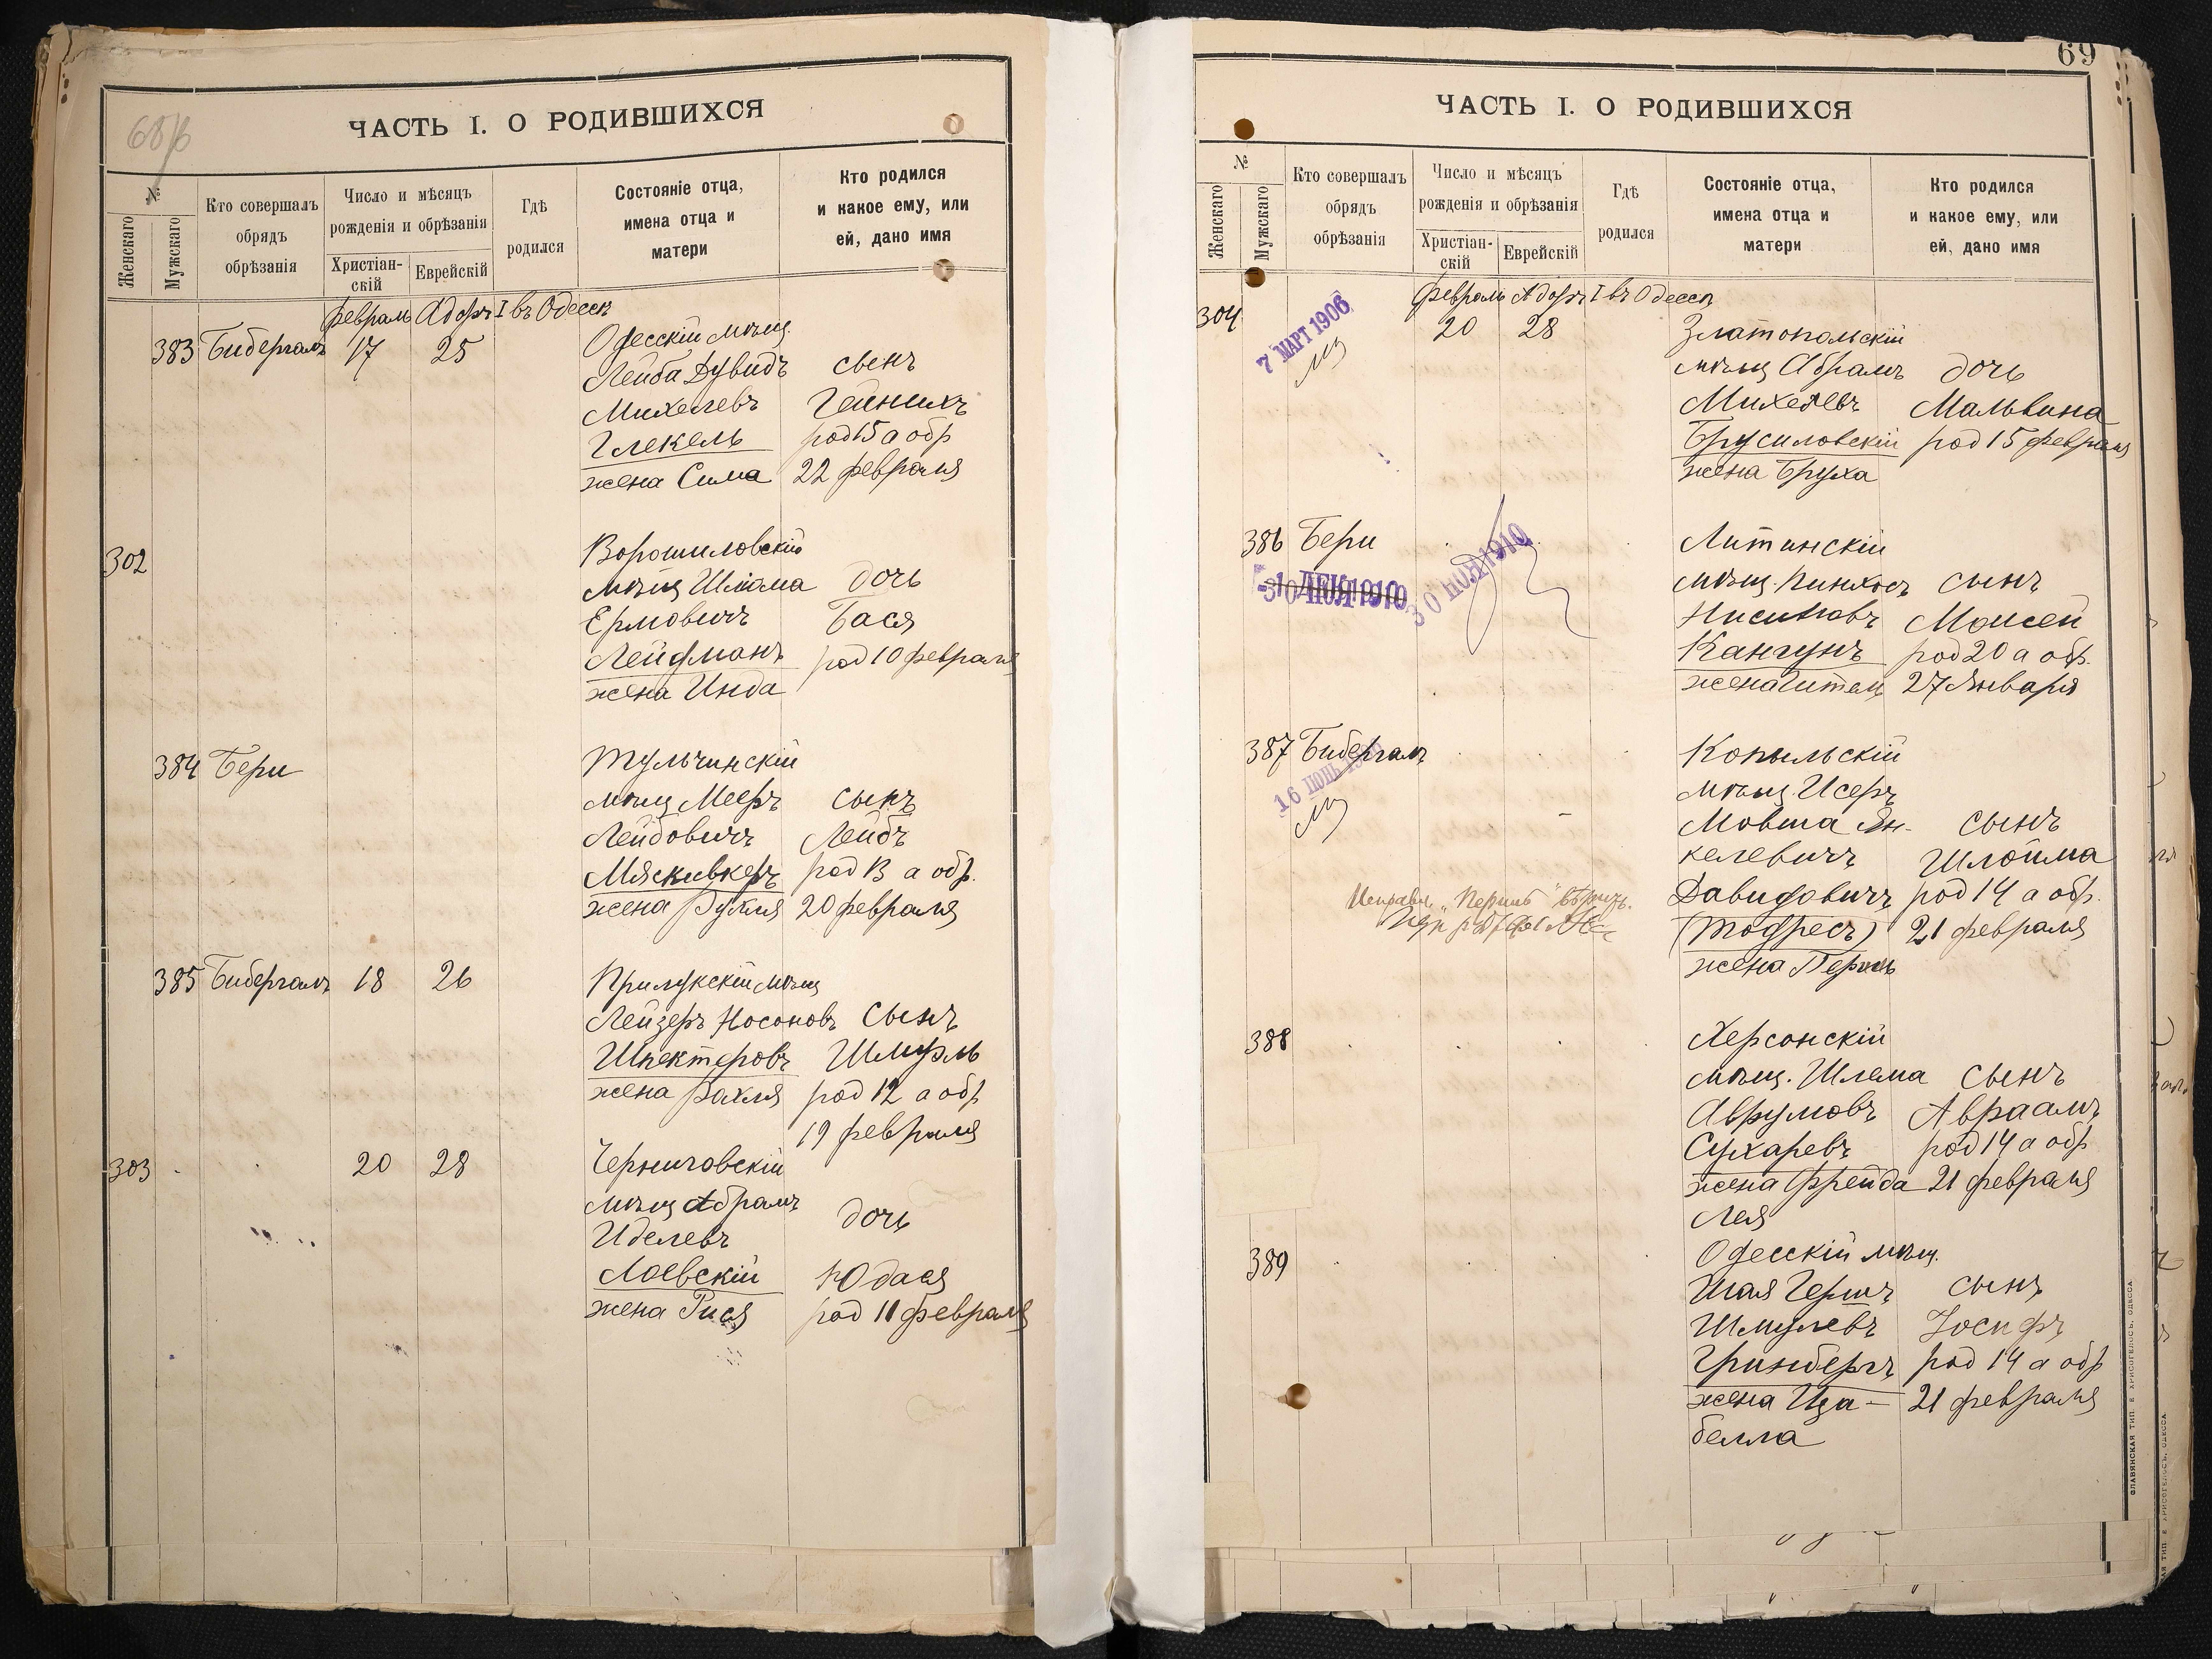 68 об
ЧАСТЬ I. О РОДИВШИХСЯ
№
Женскаго
Мужскаго
Кто совершалъ
обрядъ
обрѣзанія
Число и мѣсяцъ
рожденія и обрѣзанія
Христіан-
скій
Еврейскій
Гдѣ
родился
Состояніе отца,
имена отца и
матери
Кто родился
и какое ему, или
ей, дано имя
февраль Адаръ I въ Одессѣ
383 Бибергалъ 17 25 Одесскій мѣщ
Лейба Дувидъ сынъ
Михелевъ Гейнихъ
Глекель род 15 а обр
жена Сима 22 февраля
302 Ворошиловскій
мѣщ Шлома дочь
Ермовичъ Бася
Лейфманъ род 10 февраля
жена Инда
384 Бери Тульчинскій
мѣщ Мееръ сынъ
Лейбовичъ Лейбъ
Мясковкеръ род 13 а обр.
жена Рухля 20 февраля
385 Бибергалъ 18 26 Прилукскій мѣщ
Лейзеръ Носоновъ сынъ
Шпектеровъ Шмуль
жена Рахля род 12 а обр
19 февраля
303 20 28 Черниговскій
мѣщ Абрамъ
Иделевъ дочь
Лоевскій Юдася
жена Рися род 11 февраля
69
ЧАСТЬ I. О РОДИВШИХСЯ
№
Женскаго
Мужскаго
Кто совершалъ
обрядъ
обрѣзанія
Число и мѣсяцъ
рожденія и обрѣзанія
Христіан-
скій
Еврейскій
Гдѣ
родился
Состояніе отца,
имена отца и
матери
Кто родился
и какое ему, или
ей, дано имя
февраль Адаръ I въ Одессѣ
304 7 МАРТ 1906 20 28 Златопольскій
мѣщ Абрамъ дочь
Михелевъ Мальвина
Брусиловскій род 15 февраля
жена Бруха
386 Бери Литинскій
30 НОЯ 1910
мѣщ. Пинхосъ сынъ
Нисиновъ Моисей
Кангунъ род 20 а обр.
жена Гитель 27 Января
387 Бибергалъ Копыльскій
16 ІЮНЬ
мѣщ. Исеръ
Мовша Ян- сынъ
келевичъ Шлойма
Давидовичъ род 14 а обр.
(Тодресъ) 21 февраля
жена Перль
388 Херсонскій
мѣщ. Шлема сынъ
Аврумовъ Авраамъ
Сухаревъ род 14 а обр
жена Фрейда 21 февраля
Лея
389 Одесскій мѣщ.
Шая Гершъ сынъ
Шмулевъ Іосифъ
Гринбергъ род 14 а обр
жена Иза- 21 февраля
белла
СЛАВЯНСКАЯ ТИП. Е ХРИСОГЕЛОСЪ, ОДЕССА